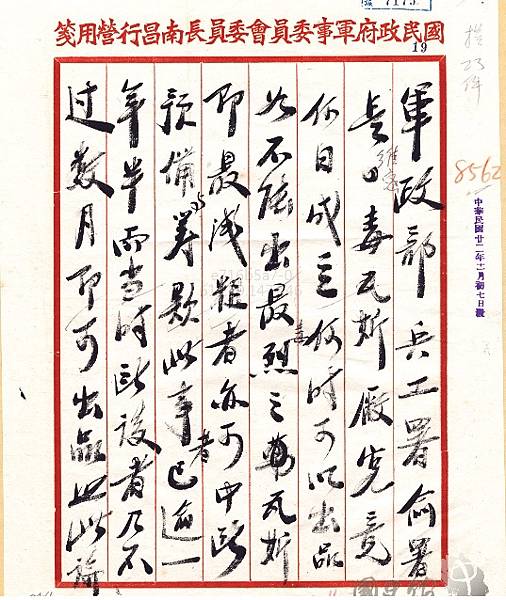 國民政府軍事委員會委員長南昌行營用箋
19
8562
中華民國廿二年 月初七日發
軍政部兵工署俞署
長 毒瓦斯廠究竟
何日成立何時可以出品
如不能出最烈之毒瓦斯
即最淺粗者亦可
預備 籌款此事 已逾一
年半而當時 設者乃不
过数月即可出品